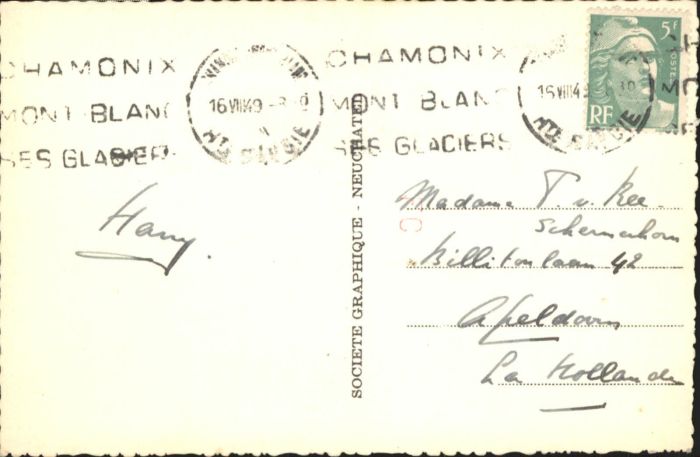 CHAMONIX
MONT-BLANC
SES GLACIERS
16 VIII 49
HTE SAVOIE
CHAMONIX
MONT BLANC
SES GLACIERS
HTE SAVOIE
5F
POSTES
RF
Harry.
SOCIETE GRAPHIQUE - NEUCHATEL
Madame T. v. Ree
Schermerhorn
Billitonlaan 42
Apeldoorn
La Hollande